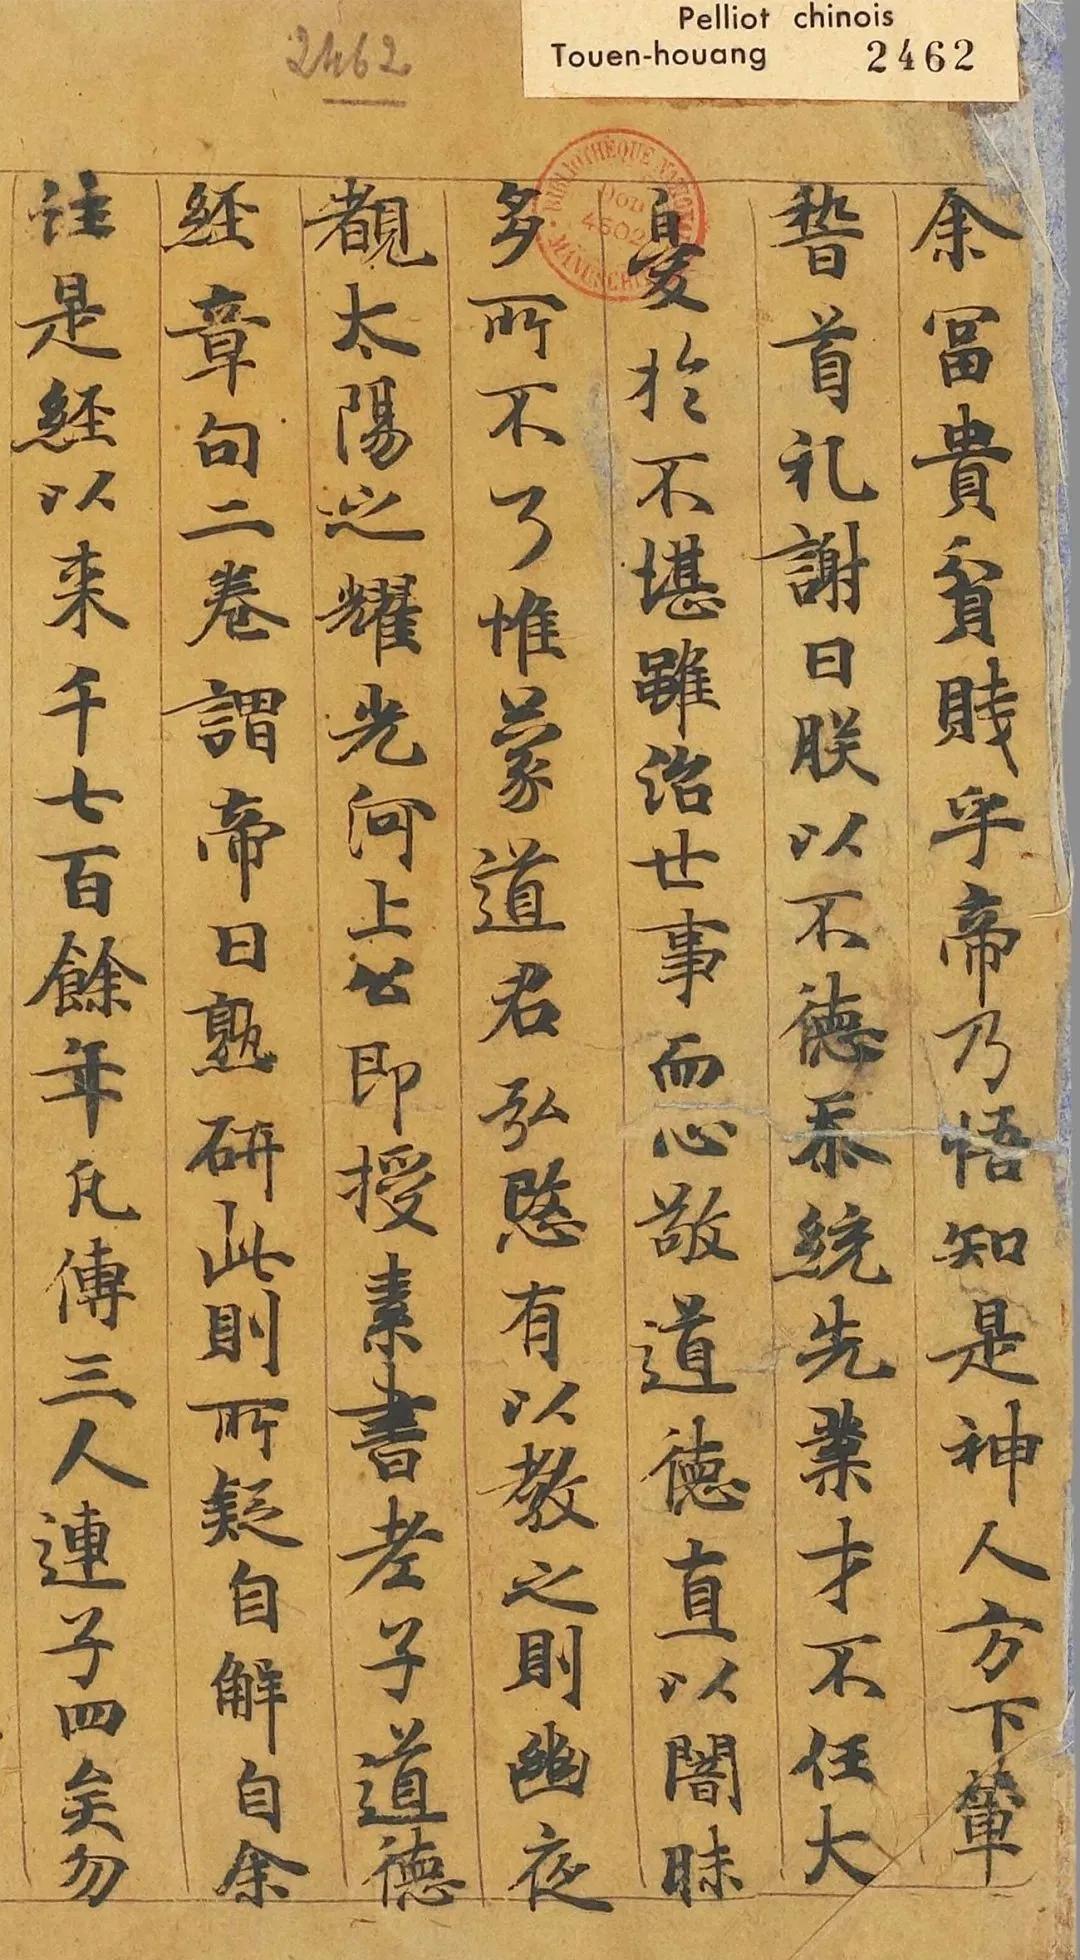 Pelliot chinois
Touen-houang 2462
2462
BIBLIOTHÈQUE NATIONALE MANUSCRITS
Don 4502
余冨貴貧賤乎帝乃悟知是神人方下輦
稽首礼謝曰朕以不德忝統先業才不任大
憂於不堪雖治世事而心敬道德直以闇昧
多所不了惟蒙道君弘愍有以教之則幽夜
覩太陽之耀光河上公即授素書老子道德
経章句二巻謂帝曰熟研此則所疑自解自余
注是経以来千七百餘年凡傳三人連子四矣勿